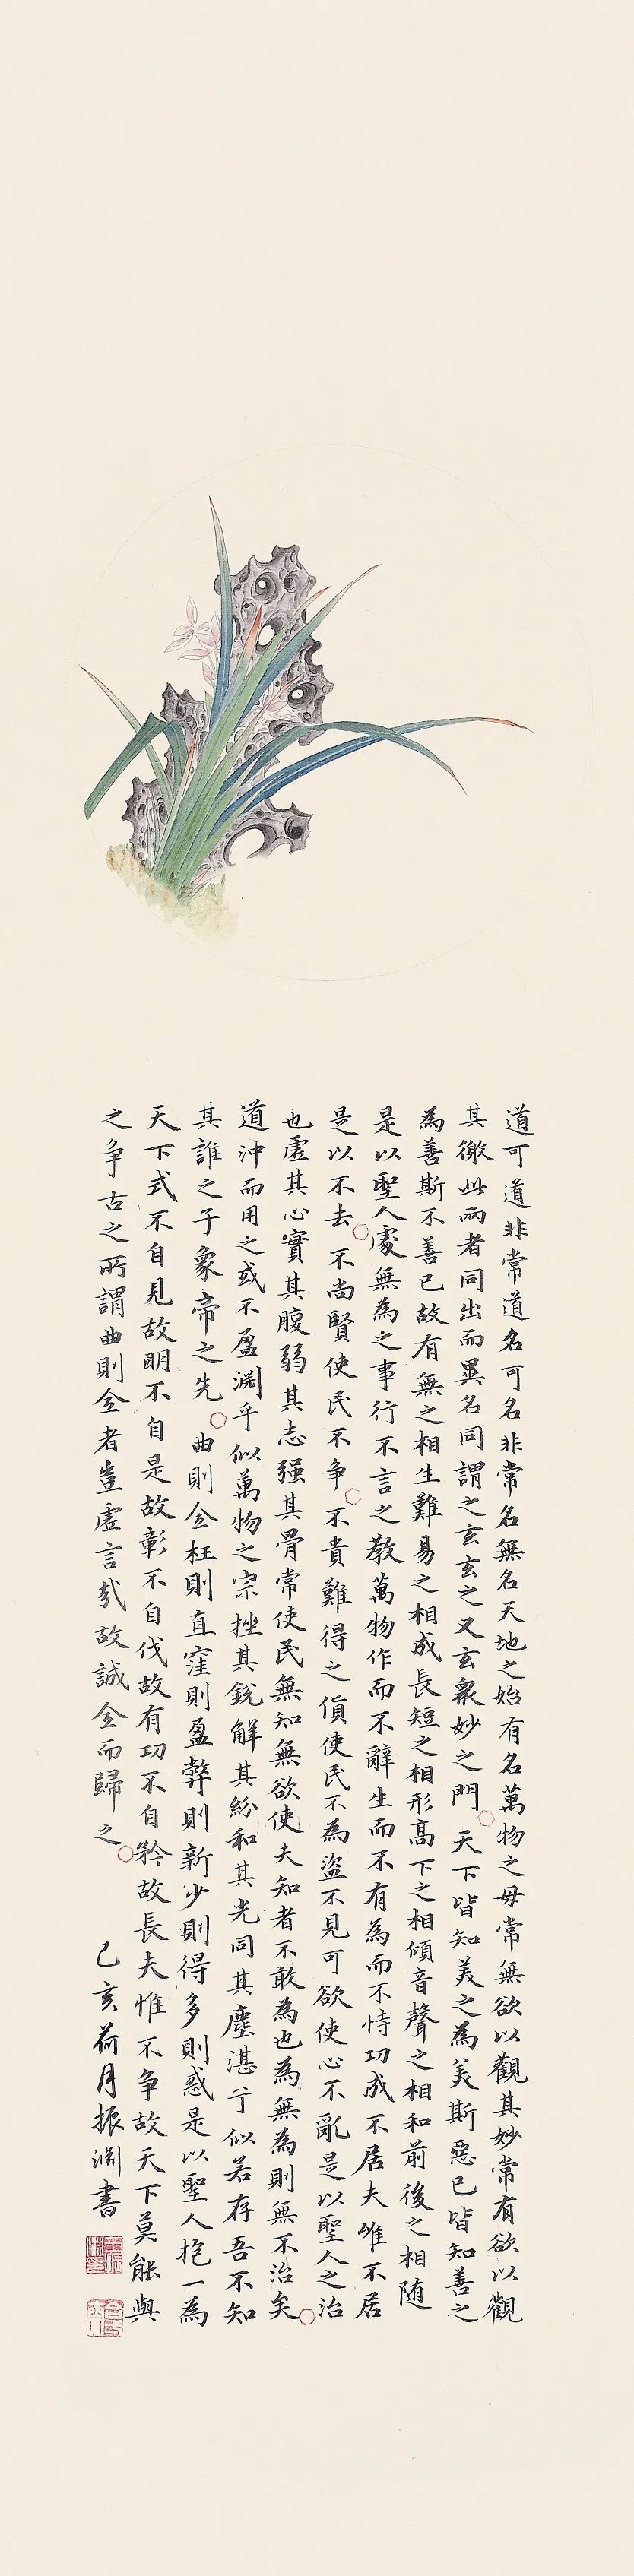 道可道非常道名可名非常名無名天地之始有名萬物之母常無欲以觀其妙常有欲以觀
其徼此兩者同出而異名同謂之玄玄之又玄眾妙之門天下皆知美之為美斯惡已皆知善之
為善斯不善已故有無之相生難易之相成長短之相形高下之相傾音聲之相和前後之相随
是以聖人處無為之事行不言之教萬物作而不辭生而不有為而不恃功成不居夫惟不居
是以不去不尚賢使民不争不貴難得之貨使民不為盜不見可欲使心不亂是以聖人之治
也虛其心實其腹弱其志强其骨常使民無知無欲使夫知者不敢為也為無為則無不治矣
道沖而用之或不盈淵乎似萬物之宗挫其銳解其紛和其光同其塵湛兮似若存吾不知
其誰之子象帝之先曲則全枉則直窪則盈弊則新少則得多則惑是以聖人抱一為
天下式不自見故明不自是故彰不自伐故有功不自矜故長夫惟不争故天下莫能與
之争古之所謂曲則全者豈虛言哉故誠全而歸之
己亥荷月振淵書